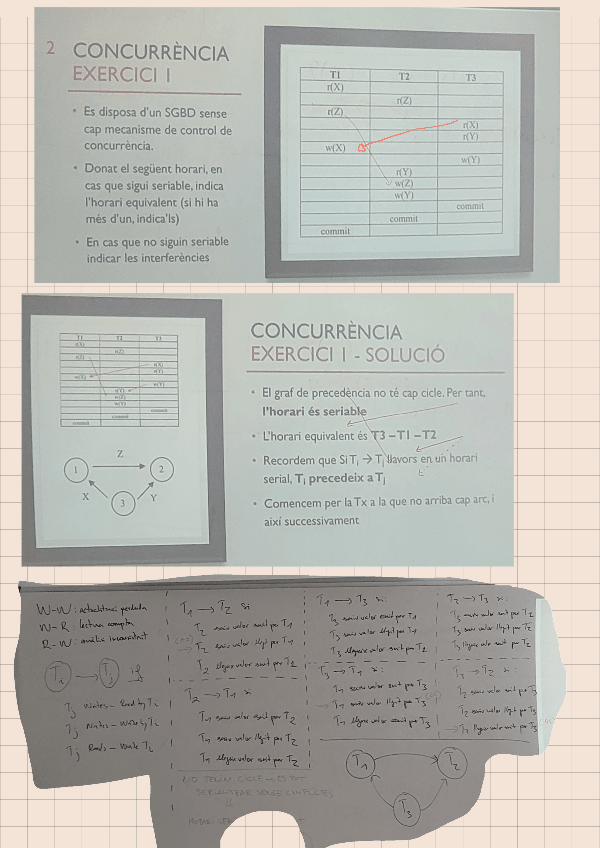 2 CONCURRÈNCIA
EXERCICI 1
• Es disposa d'un SGBD sense
cap mecanisme de control de
concurrència.
• Donat el següent horari, en
cas que sigui seriable, indica
l'horari equivalent (si hi ha
més d'un, indica'ls)
• En cas que no siguin seriable
indicar les interferències
T1 T2 T3
r(X)
r(Z)
r(Z)
r(X)
r(Y)
w(X)
w(Y)
r(Y)
w(Z)
w(Y)
commit
commit
commit
T1 T2 T3
r(X)
r(Z)
r(Z)
r(X)
r(Y)
w(X)
w(Y)
r(Y)
w(Z)
w(Y)
commit
commit
commit
Z
1 2
X Y
3
CONCURRÈNCIA
EXERCICI 1 - SOLUCIÓ
• El graf de precedència no té cap cicle. Per tant,
l'horari és seriable
• L'horari equivalent és T3 – T1 – T2
• Recordem que Si Ti → Tj llavors en un horari
serial, Ti precedeix a Tj
• Comencem per la Tx a la que no arriba cap arc, i
així successivament
W-W: actualització perduda
W-R: lectura
R-W: anàlisi inconsistent
Ti → Tj if
Tj Writes - Read by Ti
Tj Writes - Write by Ti
Tj Reads - Write Ti
T1 → T2 si
T2 valor escrit per T1
T2 valor llegit per T1
T2 llegeix valor escrit per T1
T2 → T1 si
T1 valor escrit per T2
T1 valor llegit per T2
T1 llegeix valor escrit per T2
T1 → T3 si:
T3 valor escrit per T1
T3 valor llegit per T1
T3 llegeix valor escrit per T1
T3 → T1 si:
T1 valor escrit per T3
T1 valor llegit per T3
T1 llegeix valor escrit per T3
T2 → T3 si:
T3 valor escrit per T2
T3 valor llegit per T2
T3 llegeix valor escrit per T2
T3 → T2 si:
T2 valor escrit per T3
T2 valor llegit per T3
T2 llegeix valor escrit per T3
T1 T2
T3
NO CICLE ES POT
SERIALITZAR SENSE CONFLICTES